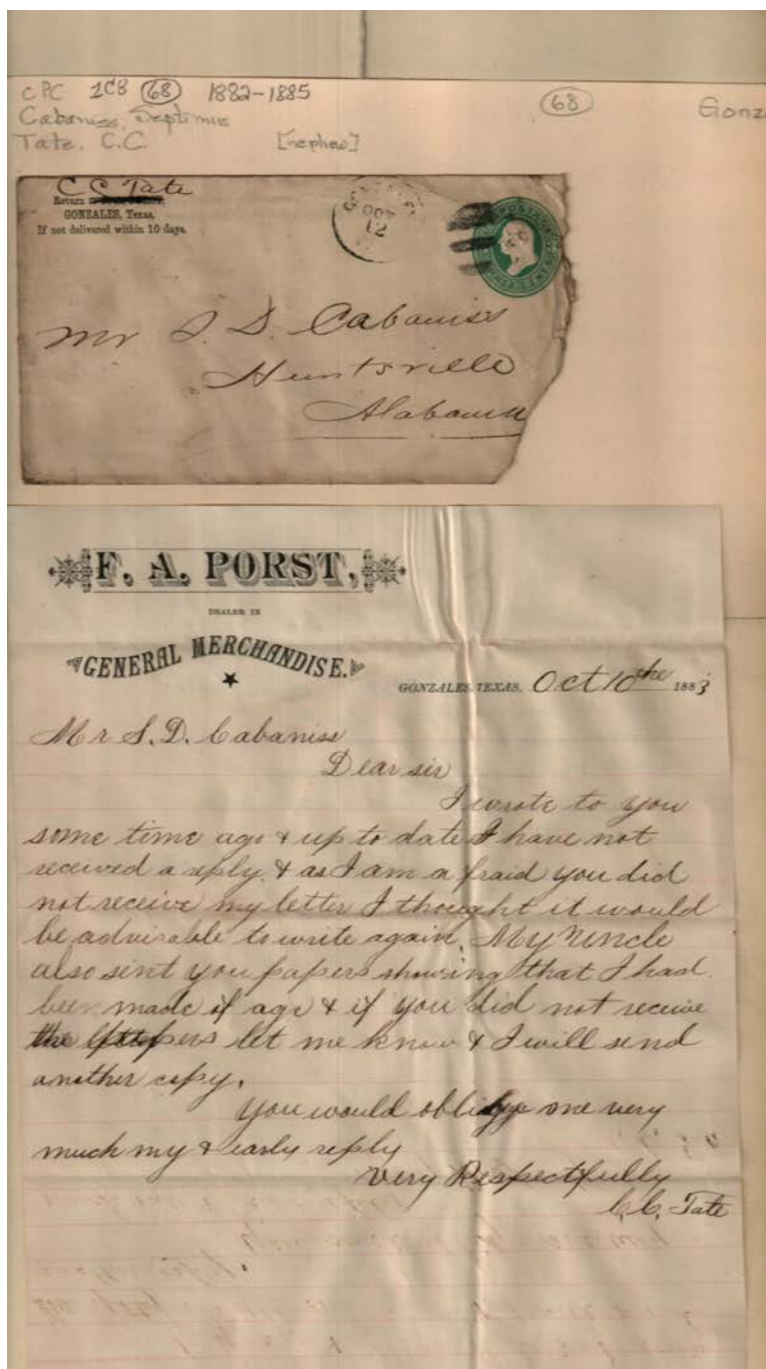 CPC 1C8 (68) 1882-1885 (68) Gonz
Cabaniss, Septimus
Tate, C.C. [nephew]
C C Tate
Return
GONZALES, Texas,
If not delivered within 10 days.
GONZALES
OCT
12
Mr S. D. Cabaniss
Huntsville
Alabama
F. A. PORST,
DEALER IN
GENERAL MERCHANDISE.
GONZALES, TEXAS, Oct 10the 1883
Mr S. D. Cabaniss
Dear sir
I wrote to you
some time ago & up to date I have not
received a reply. & as I am a fraid you did
not receive my letter I thought it would
be advisable to write again. My Uncle
also sent you papers showing that I had
been made if age & if you did not receive
the papers let me know & I will send
another copy.
You would oblige me very
much my & early reply
Very Respectfully
C.C. Tate